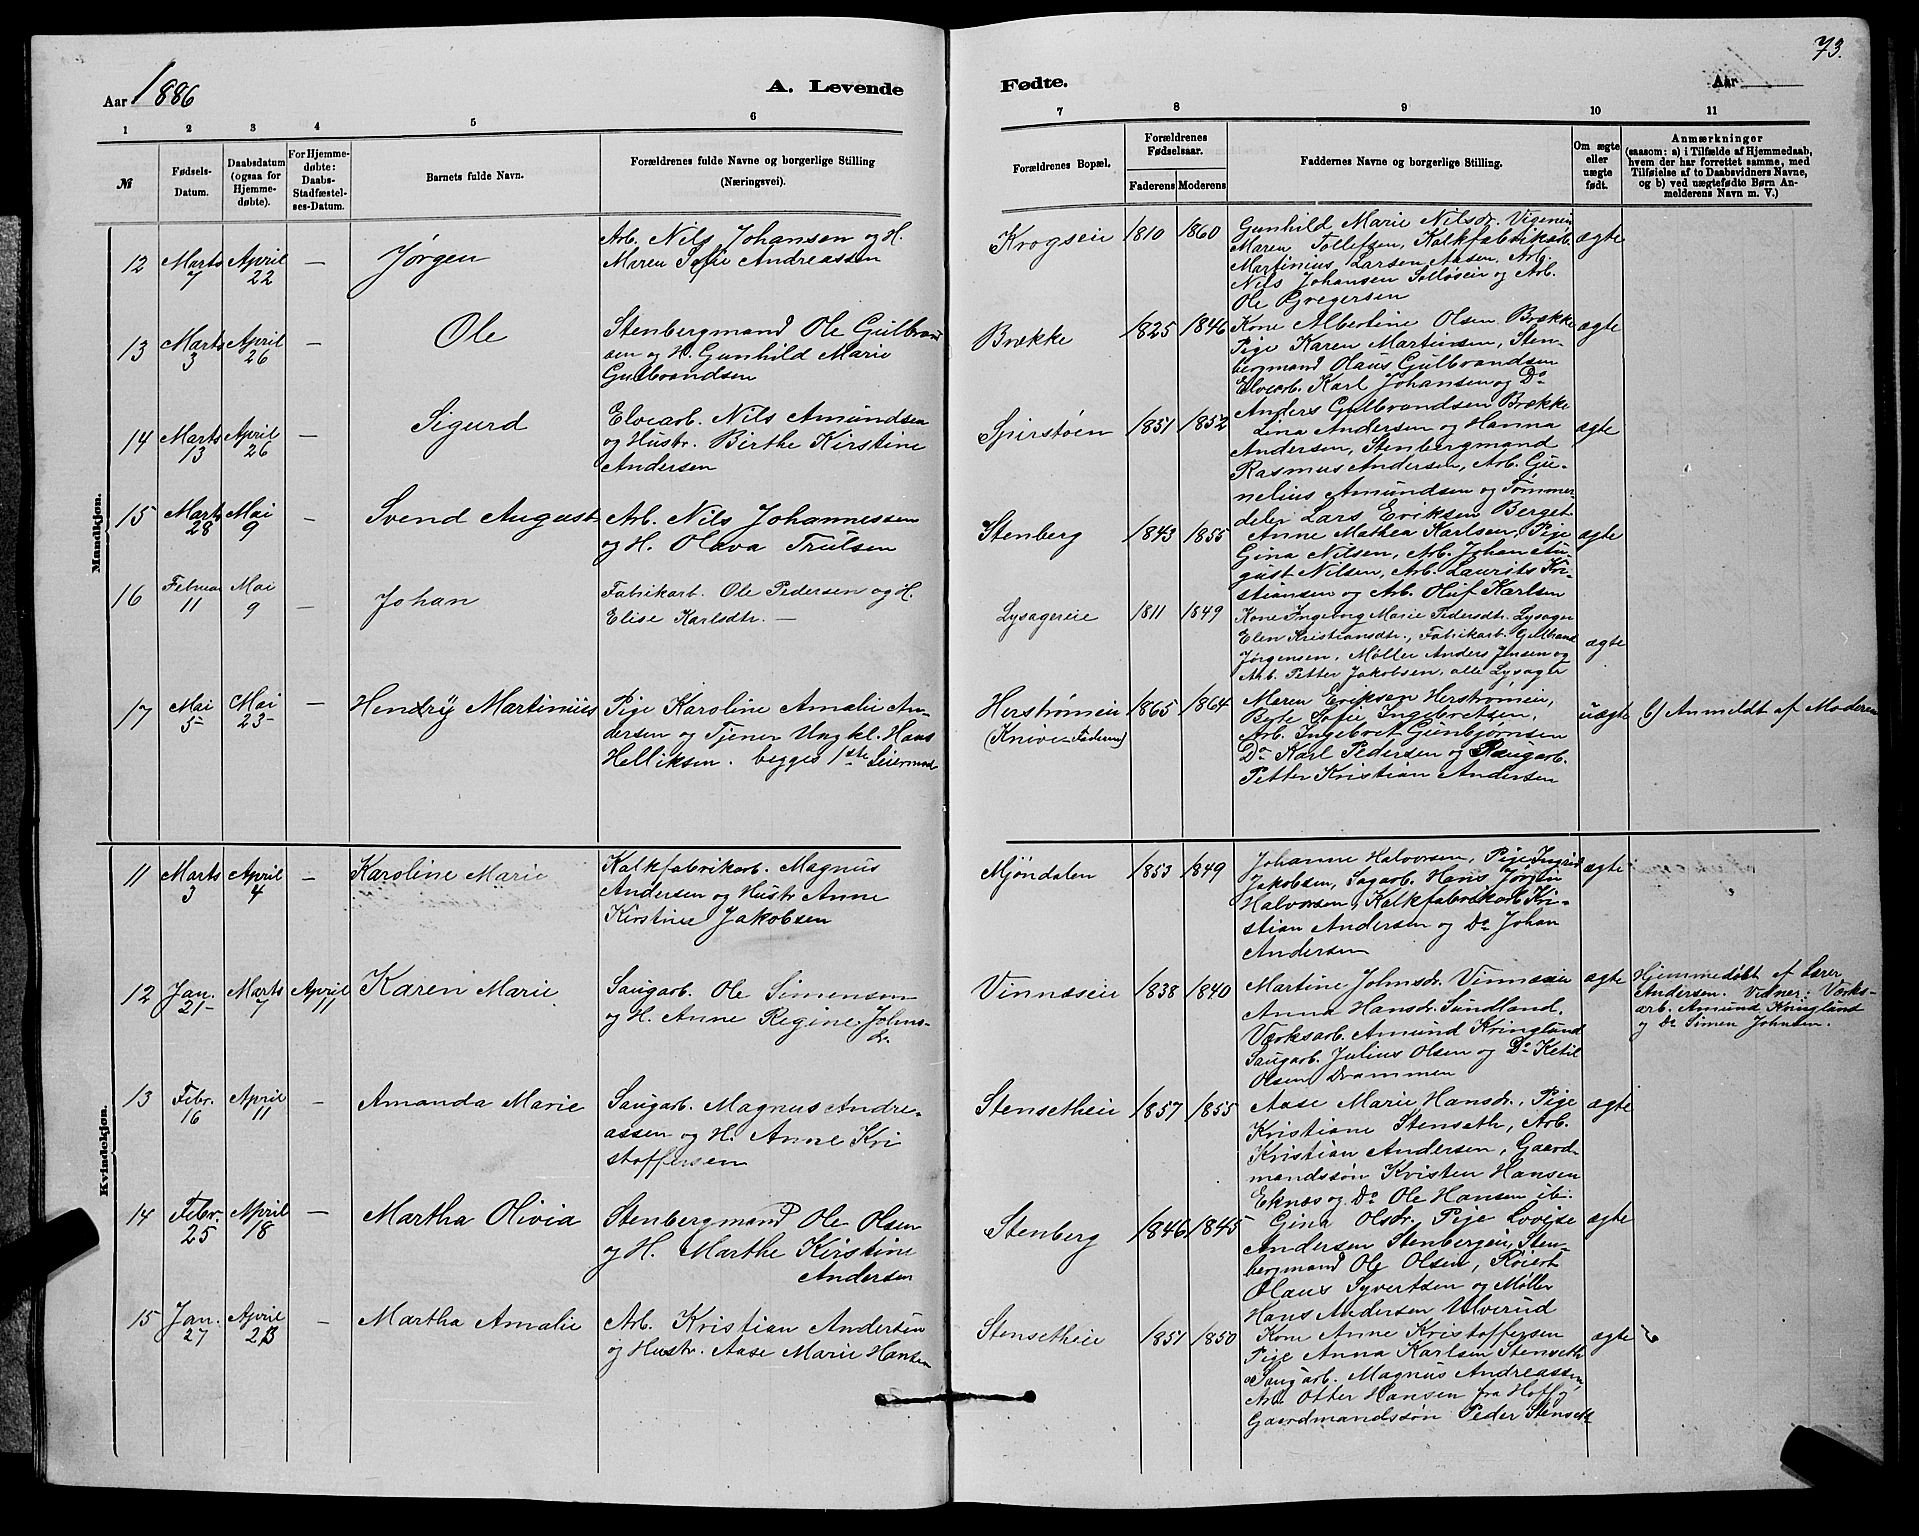 73.
Aar 1886
A. Levende
Fødte.
Aar
1 2 3 4 5 6 7 8 9 10 11
№
Fødsels-Datum.
Daabsdatum (ogsaa for Hjemmedøbte).
For Hjemmedøbte: Daabs-Stadfæstelses-Datum.
Barnets fulde Navn.
Forældrenes fulde Navne og borgerlige Stilling (Næringsvei).
Forældrenes Bopæl.
Forældrenes Fødselsaar.
Faderens Moderens
Faddernes Navne og borgerlige Stilling.
Om ægte eller uægte født.
Anmærkninger
(saasom: a) i Tilfælde af Hjemmedaab,
hvem der har forrettet samme, med
Tilføielse af to Daabsvidners Navne,
og b) ved uægtefødte Børn An-
melderens Navn m. V.)
Mandkjøn.
12 Marts 7 April 22 — Jørgen
Arb. Nils Johansen og H.
Maren Sofie Andreassen
Krogseie 1810 1860
Gunhild Marie Nilsdr. Vigeneie
Maren Tollefsen, Kalkfabrikarb.
Martinius Larsen Aasen, Arb.
Nils Johansen Solløseie og Arb.
Ole Gregersen
ægte
13 Marts 3 April 26 — Ole
Stenbergmand Ole Gulbrand
sen og H. Gunhild Marie
Gulbrandsen
Brække 1825 1846
Kone Albertine Olsen Brække
Pige Karen Martinsen, Sten-
bergmand Olaus Gulbrandsen
Elvearb. Karl Johansen og Do
Anders Gulbrandsen Brække
ægte
14 Marts 13 April 26 — Sigurd
Elvearb. Nils Amundsen
og Hustr. Birthe Kirstine
Andersen
Spirstøen 1851 1852
Lina Andersen og Hanna
Andersen, Stenbergmand
Rasmus Andersen, Arb. Gu-
nelius Amundsen og Tømmer-
deler Lars Eriksen Berget
ægte
15 Marts 28 Mai 9 — Svend August
Arb. Nils Johannessen
og H. Olava Trulsen
Stenberg 1843 1855
Anne Mathea Karlsen, Pige
Gina Nilsen, Arb. Johan Au-
gust Nilsen, Arb. Laurits Kri-
stiansen og Arb. Oluf Karlsen
ægte
16 Februar 11 Mai 9 — Johan
Fabrikarb. Ole Pedersen og H.
Elise Karlsdtr. —
Lysagereie 1811 1849
Kone Ingeborg Marie Pedersdtr. Lysager
Elen Kristiansdtr., Fabrikarb. Gulbrand
Jørgensen, Møller Anders Jensen og
Arb. Petter Jakobsen, alle Lysager
ægte
17 Mai 5 Mai 23 — Hendry Martinius
Pige Karoline Amalie An-
dersen og Tjener Ungkl. Hans
Helliksen. begges 1ste Leiermaal
Herstrømeie (Knive-Faderen) 1865 1864
Maren Eriksen Herstrømeie,
Berte Sofie Ingebretsen,
Arb. Ingebret Gunbjørnsen
Do Karl Pedersen og Saugarb.
Petter Kristian Andersen
uægte b) Anmeldt af Moderen
Kvindekjøn.
11 Marts 3 April 4 — Karoline Marie
Kalkfabrikarb. Magnus
Andersen og Hustr Anne
Kirstine Jakobsen
Mjøndalen 1853 1849
Johanne Halvorsen, Pige Ingrid
Jakobsen, Sagarb. Hans Jørgen
Halvorsen, Kalkfabrikarb. Kri-
stian Andersen og Do Johan
Andersen
ægte
12 Jan. 21 Marts 7 April 11 Karen Marie
Saugarb. Ole Simensen
og H. Anne Regine Johns-
dr.
Vinnæseie 1838 1840
Martine Johnsdr. Vinnæseie
Anna Hansdr. Sundland,
Værksarb. Amund Kringlund
Saugarb. Julius Olsen og Do Ketil
Olsen Drammen
ægte
Hjemmedøbt af Lærer
Andersen. Vidner: Værks-
arb. Amund Kringlund
og Do Simen Johnsen.
13 Febr. 16 April 11 — Amanda Marie
Saugarb. Magnus Andre-
assen og H. Anne Kri
stoffersen
Stensetheie 1857 1855
Aase Marie Hansdr., Pige
Kristiane Stenseth, Arb.
Kristian Andersen, Gaard-
mandssøn Kristen Hansen
Eknæs og Do Ole Hansen ib.
ægte
14 Febr. 25 April 18 — Martha Olivia
Stenbergmand Ole Olsen
og H. Marthe Kirstine
Andersen
Stenberg 1846 1845
Gina Olsdr. Pige Lovise
Andersen Stenbergen, Sten-
bergmand Ole Olsen, Røiert
Olaus Syvertsen og Møller
Hans Andersen Ulverud
ægte
15 Jan. 27 April 23 — Martha Amalie
Arb. Kristian Andersen
og Hustr. Aase Marie Hansen
Stensetheie 1851 1850
Kone Anne Kristoffersen
Pige Anna Karlsen Stenseth
Saugarb. Magnus Andreassen,
Arb Otter Hansen fra Hoff og
Gaardmandssøn Peder Stenseth
ægte